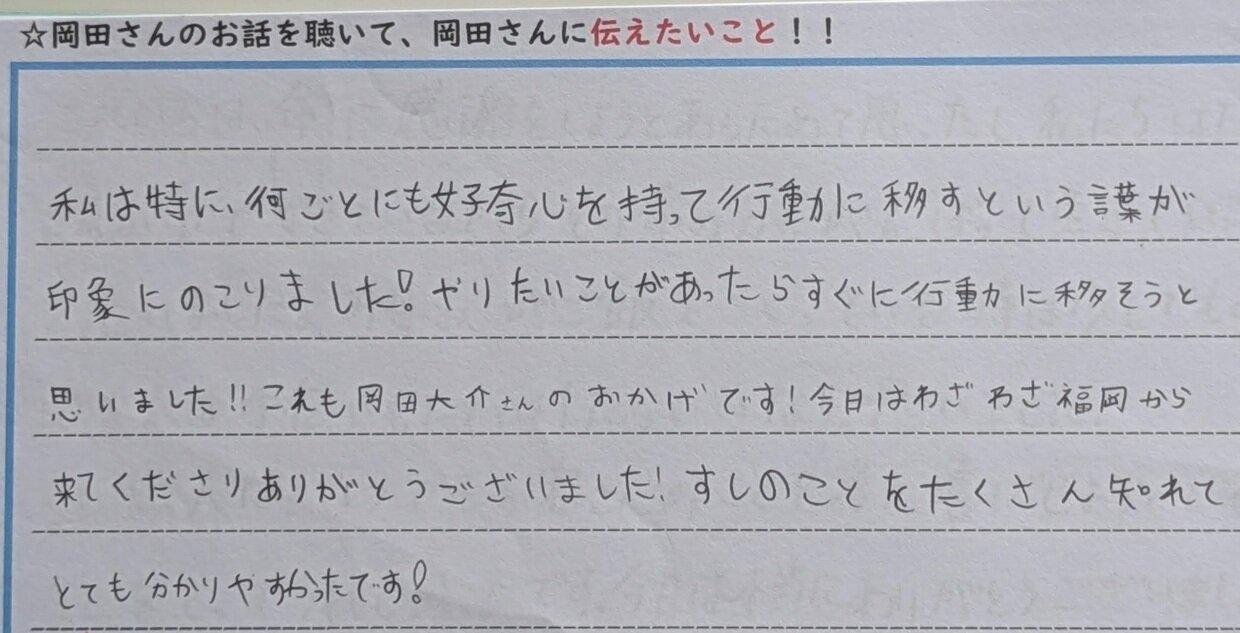 ☆岡田さんのお話を聴いて、岡田さんに伝えたいこと！！
私は特に、何ごとにも好奇心を持って行動に移すという言葉が
印象にのこりました!やりたいことがあったらすぐに行動に移そうと
思いました!!これも岡田大介さんのおかげです!今日はわざわざ福岡から
来てくださりありがとうございました!すしのことをたくさん知れて
とても分かりやすかったです!